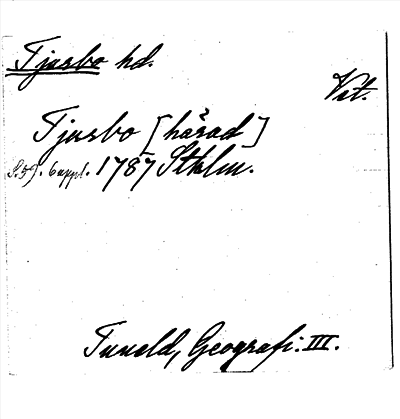 Tjusbo hd.
Vet.
Tjusbo [härad]
S. 59. 6 uppl. 1787 Sthlm.
Tuneld, Geografi. III.